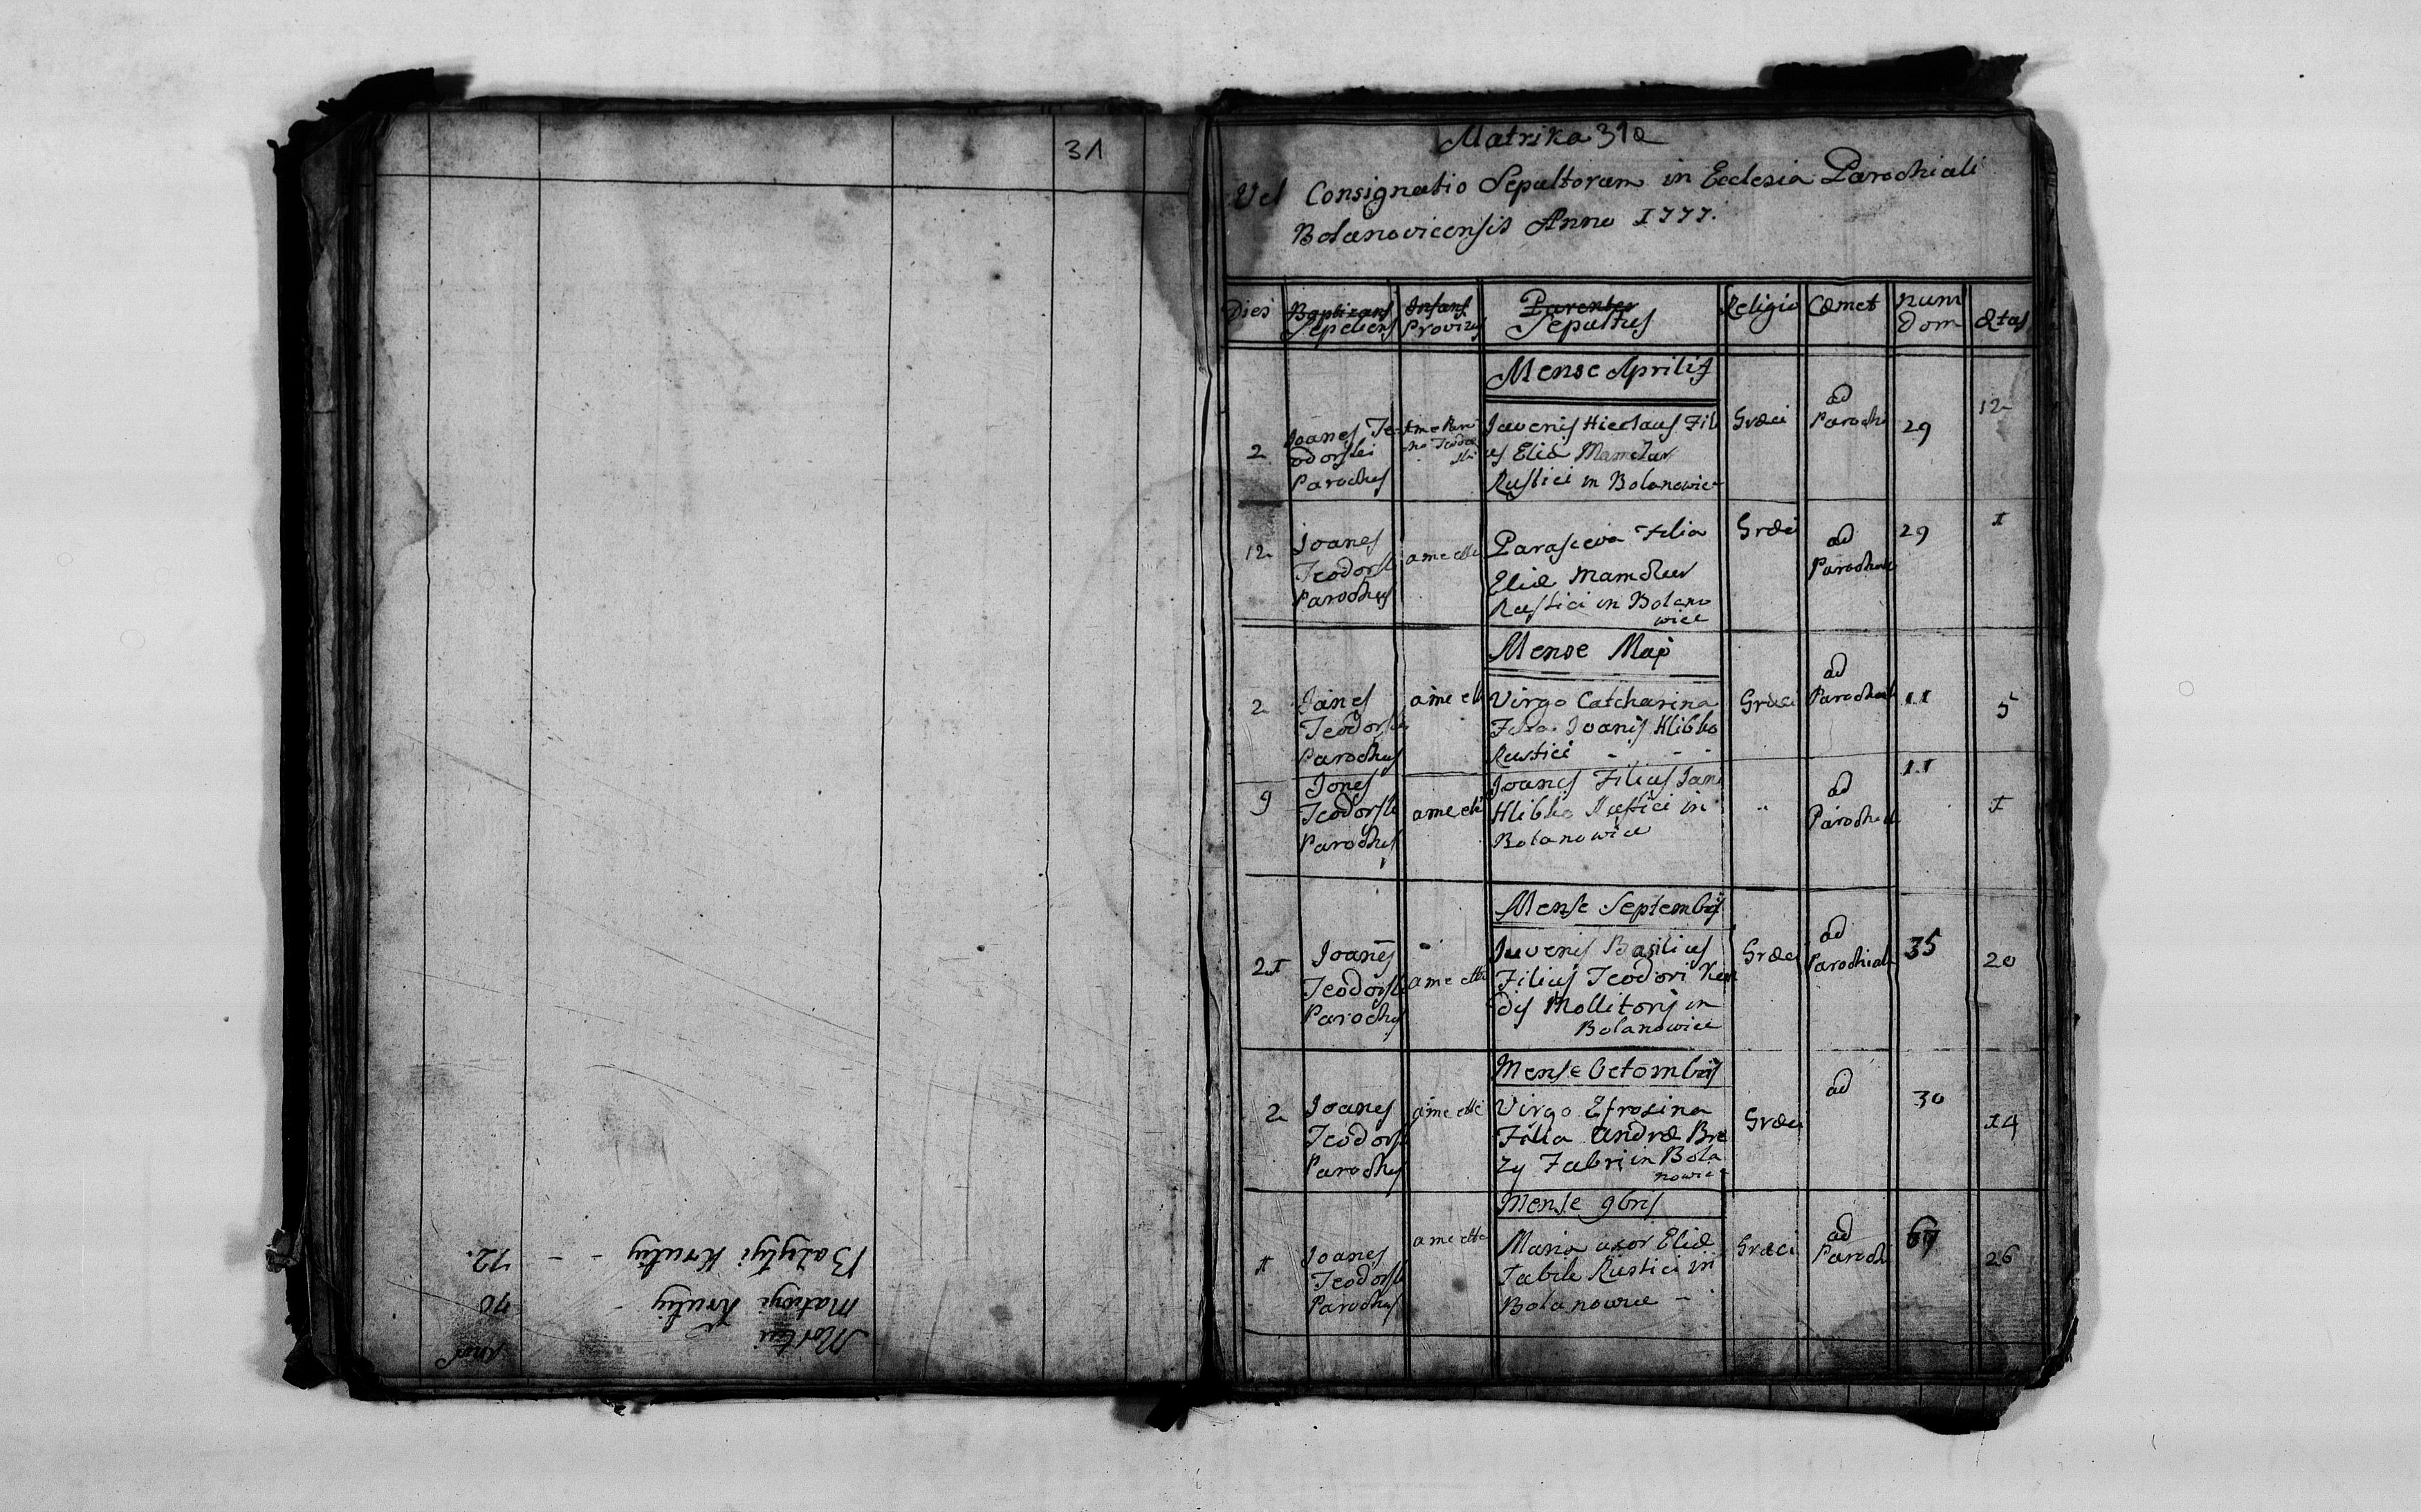 31
Anni
Mortui
70 Matwyi Krutiy -
72. Bazylyi Krutiy - -
Matrika 31a
Vel Consignatio Sepultorum in Ecclesia Parochiali
Bolanovicensis Anno 1777.
Dies Baptizans Infans Parentes Religio Cœmet num Ætas
Sepeliens Provizus Sepultus Dom
Mense Aprilis
2 Joanes Teodorski Parochus
Juvenis Fili
us Eliæ Mamchur
Rustici in Bolanowice
Græci ad Parochi 29 12
12 Joanes Teodorski Parochus
a me etti
Parascewa Filia
Eliæ Mamchur
Rustici in Bolano
wice
Græci ad Parochial 29 1
Mense Maji
2 Joanes Teodorski Parochus
a me etti
Virgo Catcharina
Filia Joanis Hlibko
Rustici - - -
Græci ad Parochial 11 5
9 Jones Teodorski Parochus
a me etti
Joanes Filius Jani
Hlibko Rustici in
Bolanowice
" ad Parochial 11 1
Mense Septembris
21 Joanes Teodorski Parochus
a me etti
Juvenis Basilius
Filius Teodori
dis Mollitoris in
Bolanowice
Græci ad Parochiale 35 20
Mense Octombris
2 Joanes Teodorski Parochus
a me etti
Virgo Efrosina
Filia Andræ Bre
zy Fabri in Bola
nowice
Græci ad 30 14
Mense 9bris
1 Joanes Teodorski Parochus
a me etti
Maria uxor Eliæ
Rustici in
Bolanowice -
Græci ad Parochi 26